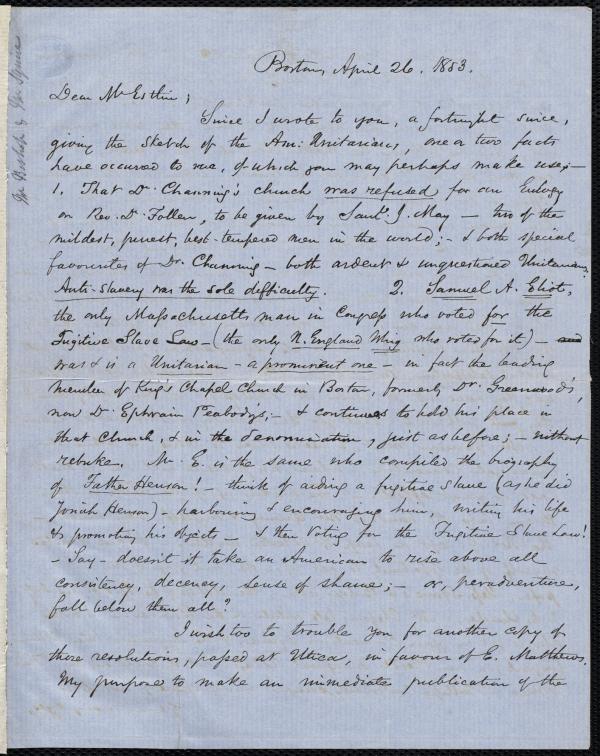 Boston, April 26. 1853.
Dear Mr Estlin;
Since I wrote to you, a fortnight since,
giving the sketch of the Am: Unitarians, one or two facts
have occurred to me, of which you may perhaps make use;—
1. That Dr. Channing's church was refused for an Eulogy
on Rev. Dr. Follen, to be given by Saml. J. May — two of the
mildest, purest, best-tempered men in the world; — & both special
favourites of Dr. Channing — both ardent & unquestioned Unitarians.
Anti-slavery was the sole difficulty. 2. Samuel A. Eliot,
the only Massachusetts man in Congress who voted for the
Fugitive Slave Law — (the only N. England Whig who voted for it) — and
was & is a Unitarian — a prominent one — in fact the leading
member of King's Chapel Church in Boston, formerly Dr. Greenwood's,
now Dr. Ephraim Peabody's; — & continues to hold his place in
that Church, & in the denomination, just as before; — without
rebuke. Mr. E. is the same who compiled the biography
of Father Henson! — think of aiding a fugitive slave (as he did
Josiah Henson) — harbouring & encouraging him, writing his life
& promoting his objects — & then voting for the Fugitive Slave Law!
— Say — doesn't it take an American to rise above all
consistency, decency, sense of shame; — or, peradventure,
fall below them all?
I wish too to trouble you for another copy of
those resolutions, passed at Utica, in favour of E. Matthews.
My purpose to make an immediate publication of the